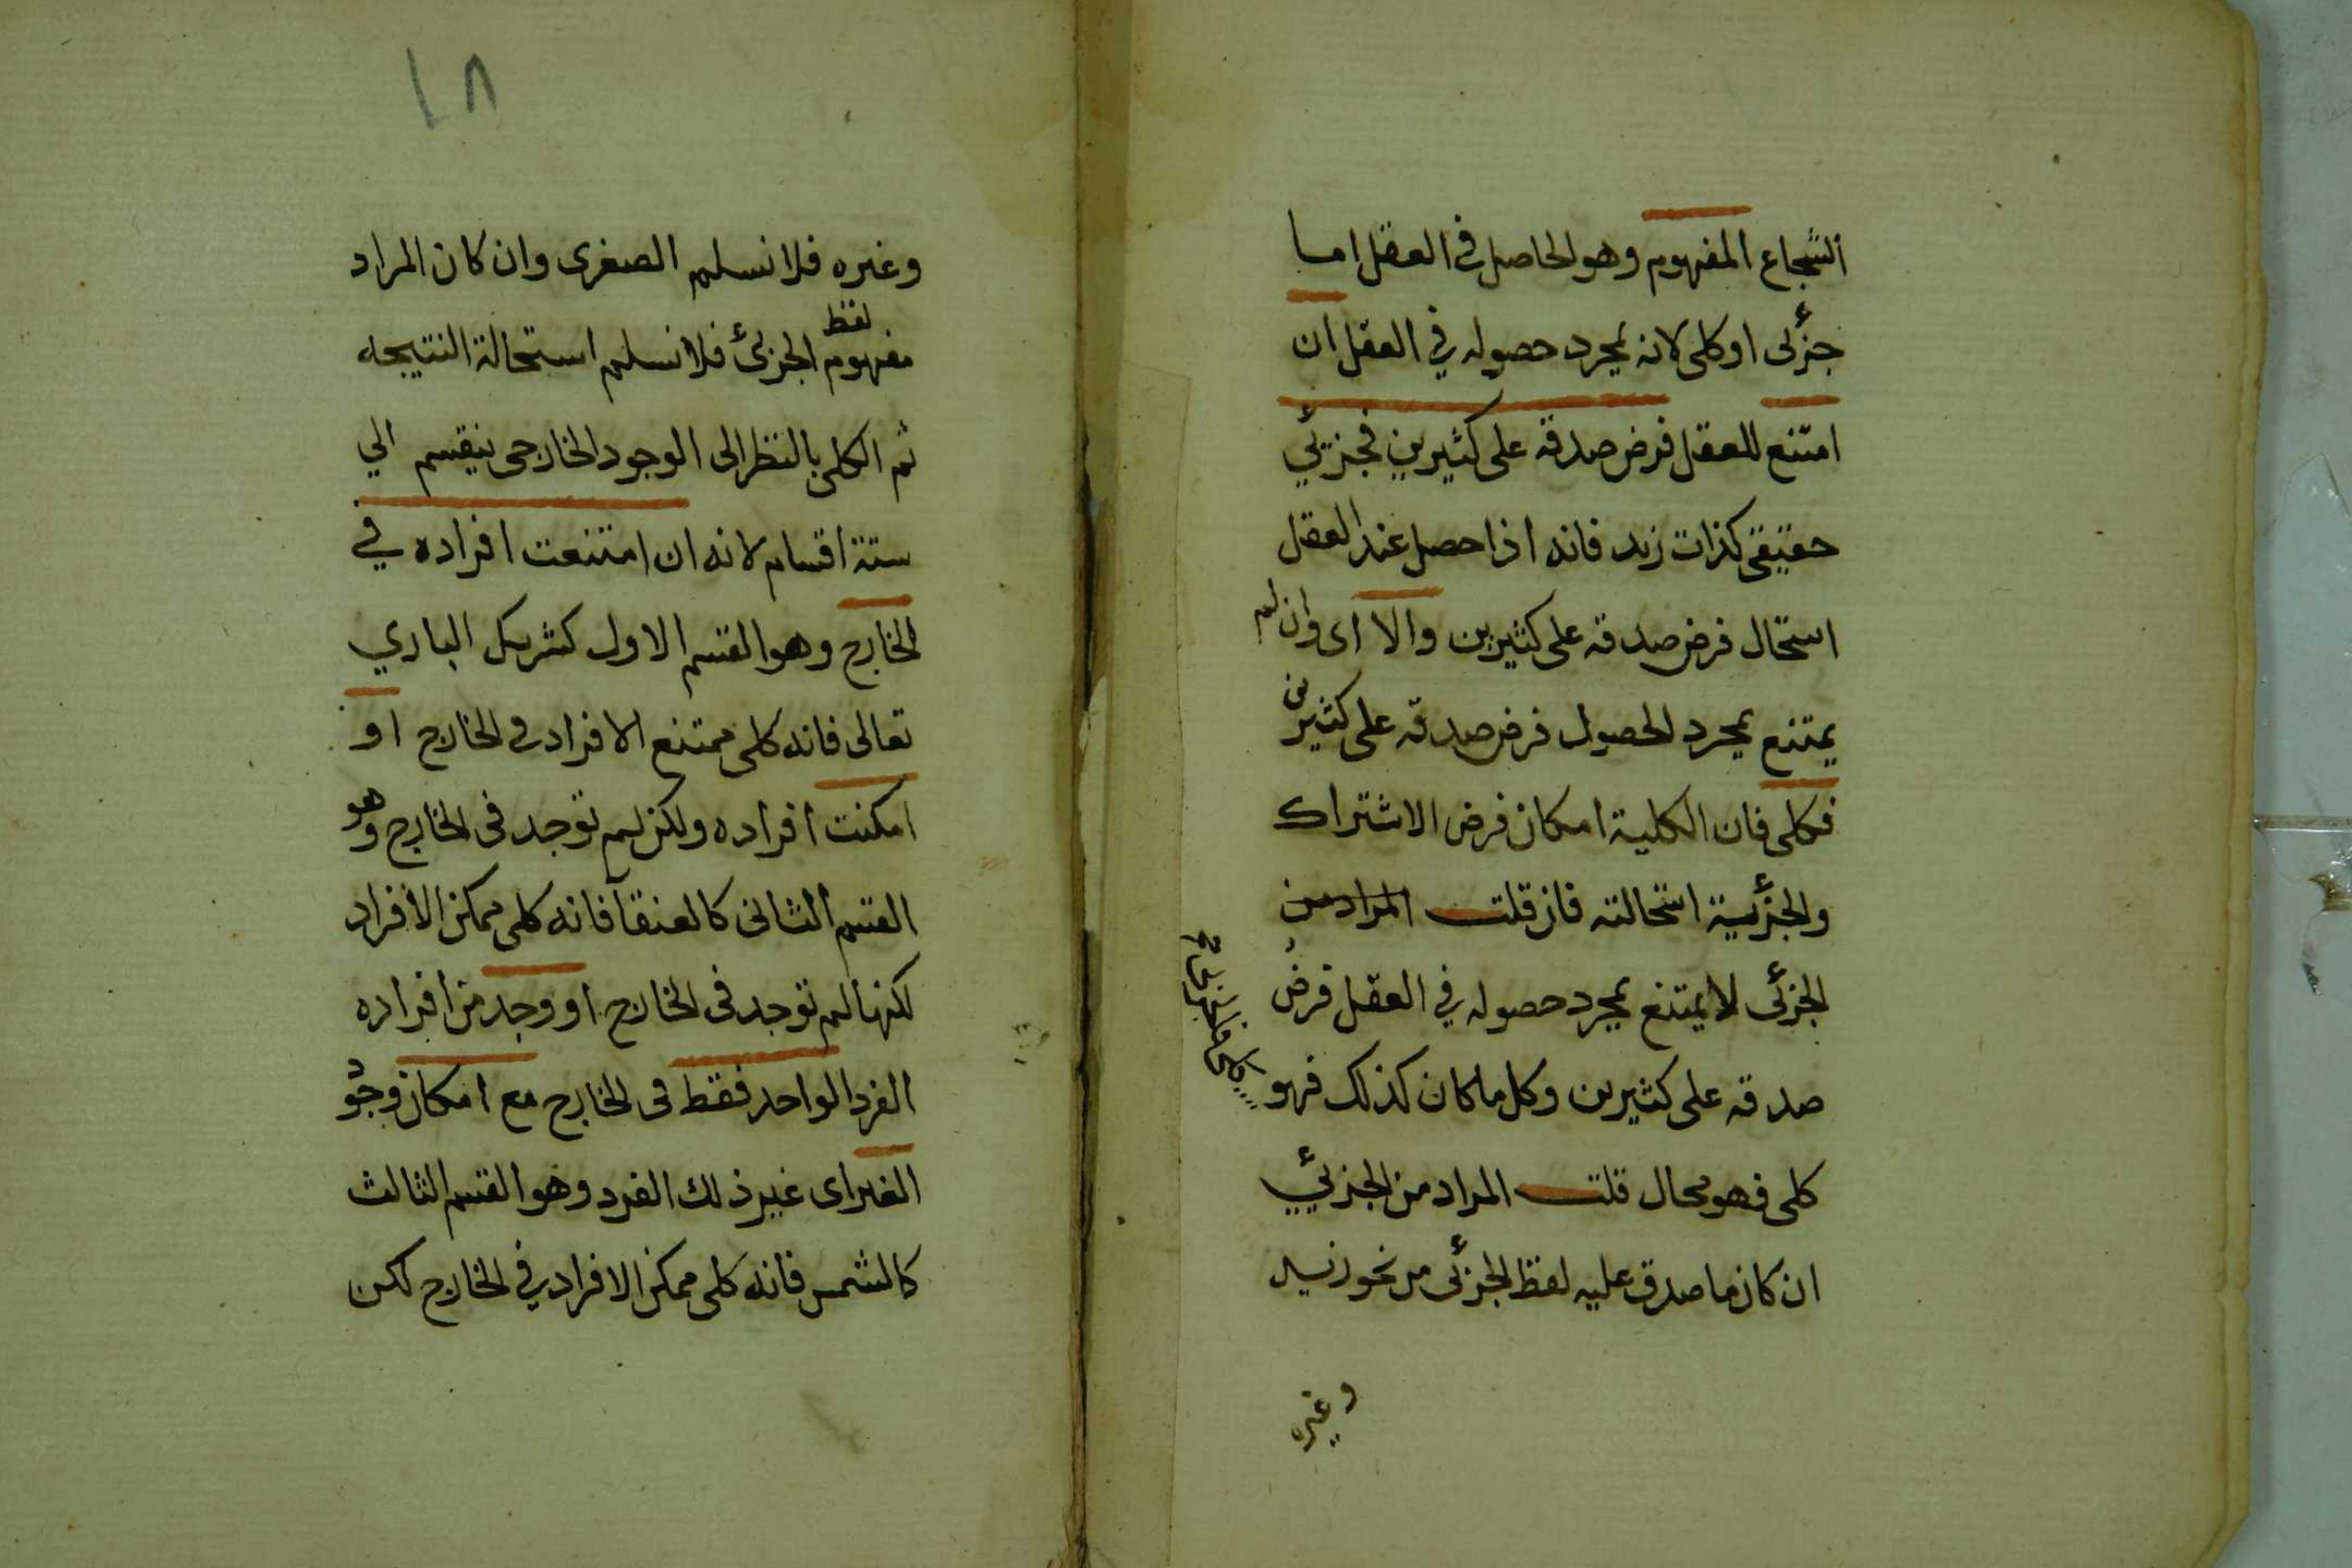 الشجاع المفهوم وهو الحاصل في العقل اما
جزئى او كلى لانه بمجرد حصوله في العقل ان
امتنع للعقل فرض صدقه على كثيرين فجزئي
حقيقى كذات زيد فانه اذا حصل عند العقل
استحال فرض صدقه على كثيرين والا اى وان لم
يمتنع بمجرد الحصول فرض صدقه على كثيرين
فكلى فان الكلية امكان فرض الاشتراك
والجزئية استحالته فان قلت المراد من
الجزئى لا يمتنع بمجرد حصوله في العقل فرض
صدقه على كثيرين وكل ما كان كذلك فهو
كلى فهو محال قلت المراد من الجزئي
ان كان ما صدق عليه لفظ الجزئى من نحو زيد
وغيره
١٨
وغيره فلا نسلم الصغرى وان كان المراد
لفظ
مفهوم الجزئ فلا نسلم استحالة النتيجه
ثم الكلى بالنظر الى الوجود الخارجى ينقسم الي
ستة اقسام لانه ان امتنعت افراده في
الخارج وهو القسم الاول كشريك الباري
تعالى فانه كلى ممتنع الافراد في الخارج او
امكنت افراده ولكن لم توجد فى الخارج وهو
القسم الثانى كالعنقآ فانه كلى ممكن الافراد
لكنها لم توجد فى الخارج او وجد من افراده
الفرد الواحد فقط فى الخارج مع امكان وجود
الغير اى غير ذلك الفرد وهو القسم الثالث
كالشمس فانه كلى ممكن الافراد في الخارج لكن